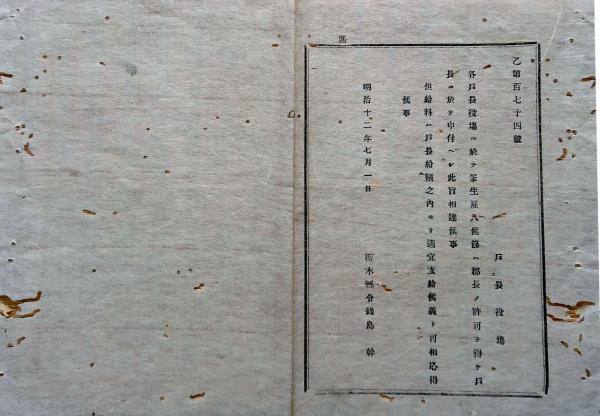 乙第百七十四號
戸長役塲
各戸長役塲ニ於テ筆生雇入候節ハ郡長ノ許可ヲ得テ戸
長ニ於テ申付ヘシ此旨相達候事
但給料ハ戸長給額之內ヨリ適宜支給候義ト可相心得
候事
明治十二年七月一日
栃木縣令鍋島幹